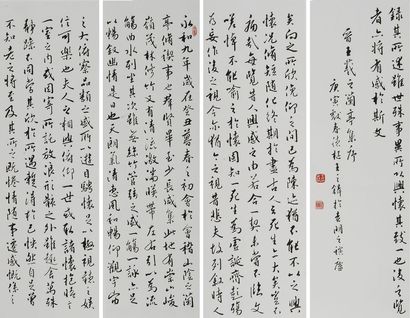 永和九年歲在癸丑暮春之初會於會稽山陰之蘭
亭脩禊事也群賢畢至少長咸集此地有崇山峻
領茂林脩竹又有清流激湍映帶左右引以為流
觴曲水列坐其次雖無絲竹管絃之盛一觴一詠亦足
以暢敘幽情是日也天朗氣清惠風和暢仰觀宇宙
之大俯察品類之盛所以遊目騁懷足以極視聽之娛
信可樂也夫人之相與俯仰一世或取諸懷抱晤言
一室之內或因寄所託放浪形骸之外雖趣舍萬殊
靜躁不同當其欣於所遇暫得於己快然自足曾
不知老之將至及其所之既倦情隨事遷感慨係之
矣向之所欣俛仰之間已為陳迹猶不能不以之興
懷況脩短隨化終期於盡古人云死生亦大矣豈不
痛哉每覽昔人興感之由若合一契未嘗不臨文
嗟悼不能喻之於懷固知一死生為虛誕齊彭殤
為妄作後之視今亦由今之視昔悲夫故列敘時人
錄其所述雖世殊事異所以興懷其致一也後之覽
者亦將有感於斯文
晉王羲之蘭亭集序
庚寅